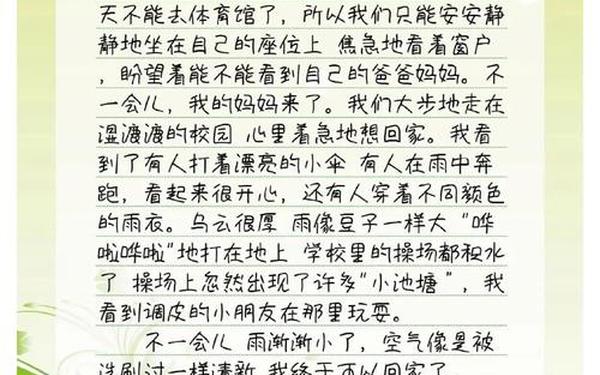 天不能去体育馆了，所以我们只能安安静
静地坐在自己的座位上 焦急地看着窗户
，盼望着能不能看到自己的爸爸妈妈。不
一会儿，我的妈妈来了。我们大步地走在
湿渡渡的校园 心里着急地想回家。我看
到了有人打着漂亮的小伞 有人在雨中奔
跑，看起来很开心，还有人穿着不同颜色
的雨衣。乌云很厚 雨像豆子一样大 “哗
啦哗啦”地打在地上 学校里的操场都积水
了 操场上忽然出现了许多“小池塘 ”，我
看到调皮的小朋友在那里玩耍。
不一会儿 雨渐渐小了，空气像是被
洗刷过一样清新 我终于可以回家了。